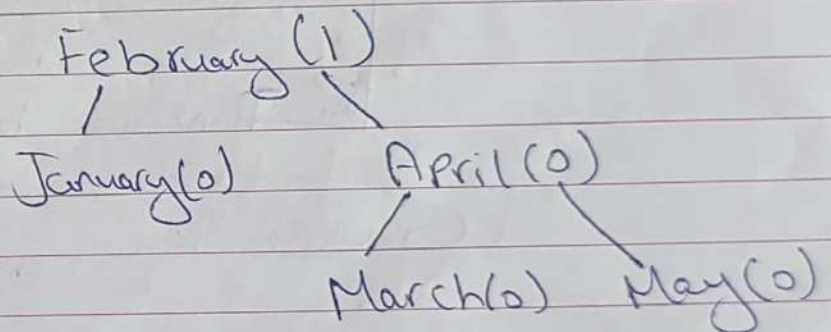 February (1)
January(0) April(0)
March(0) May(0)